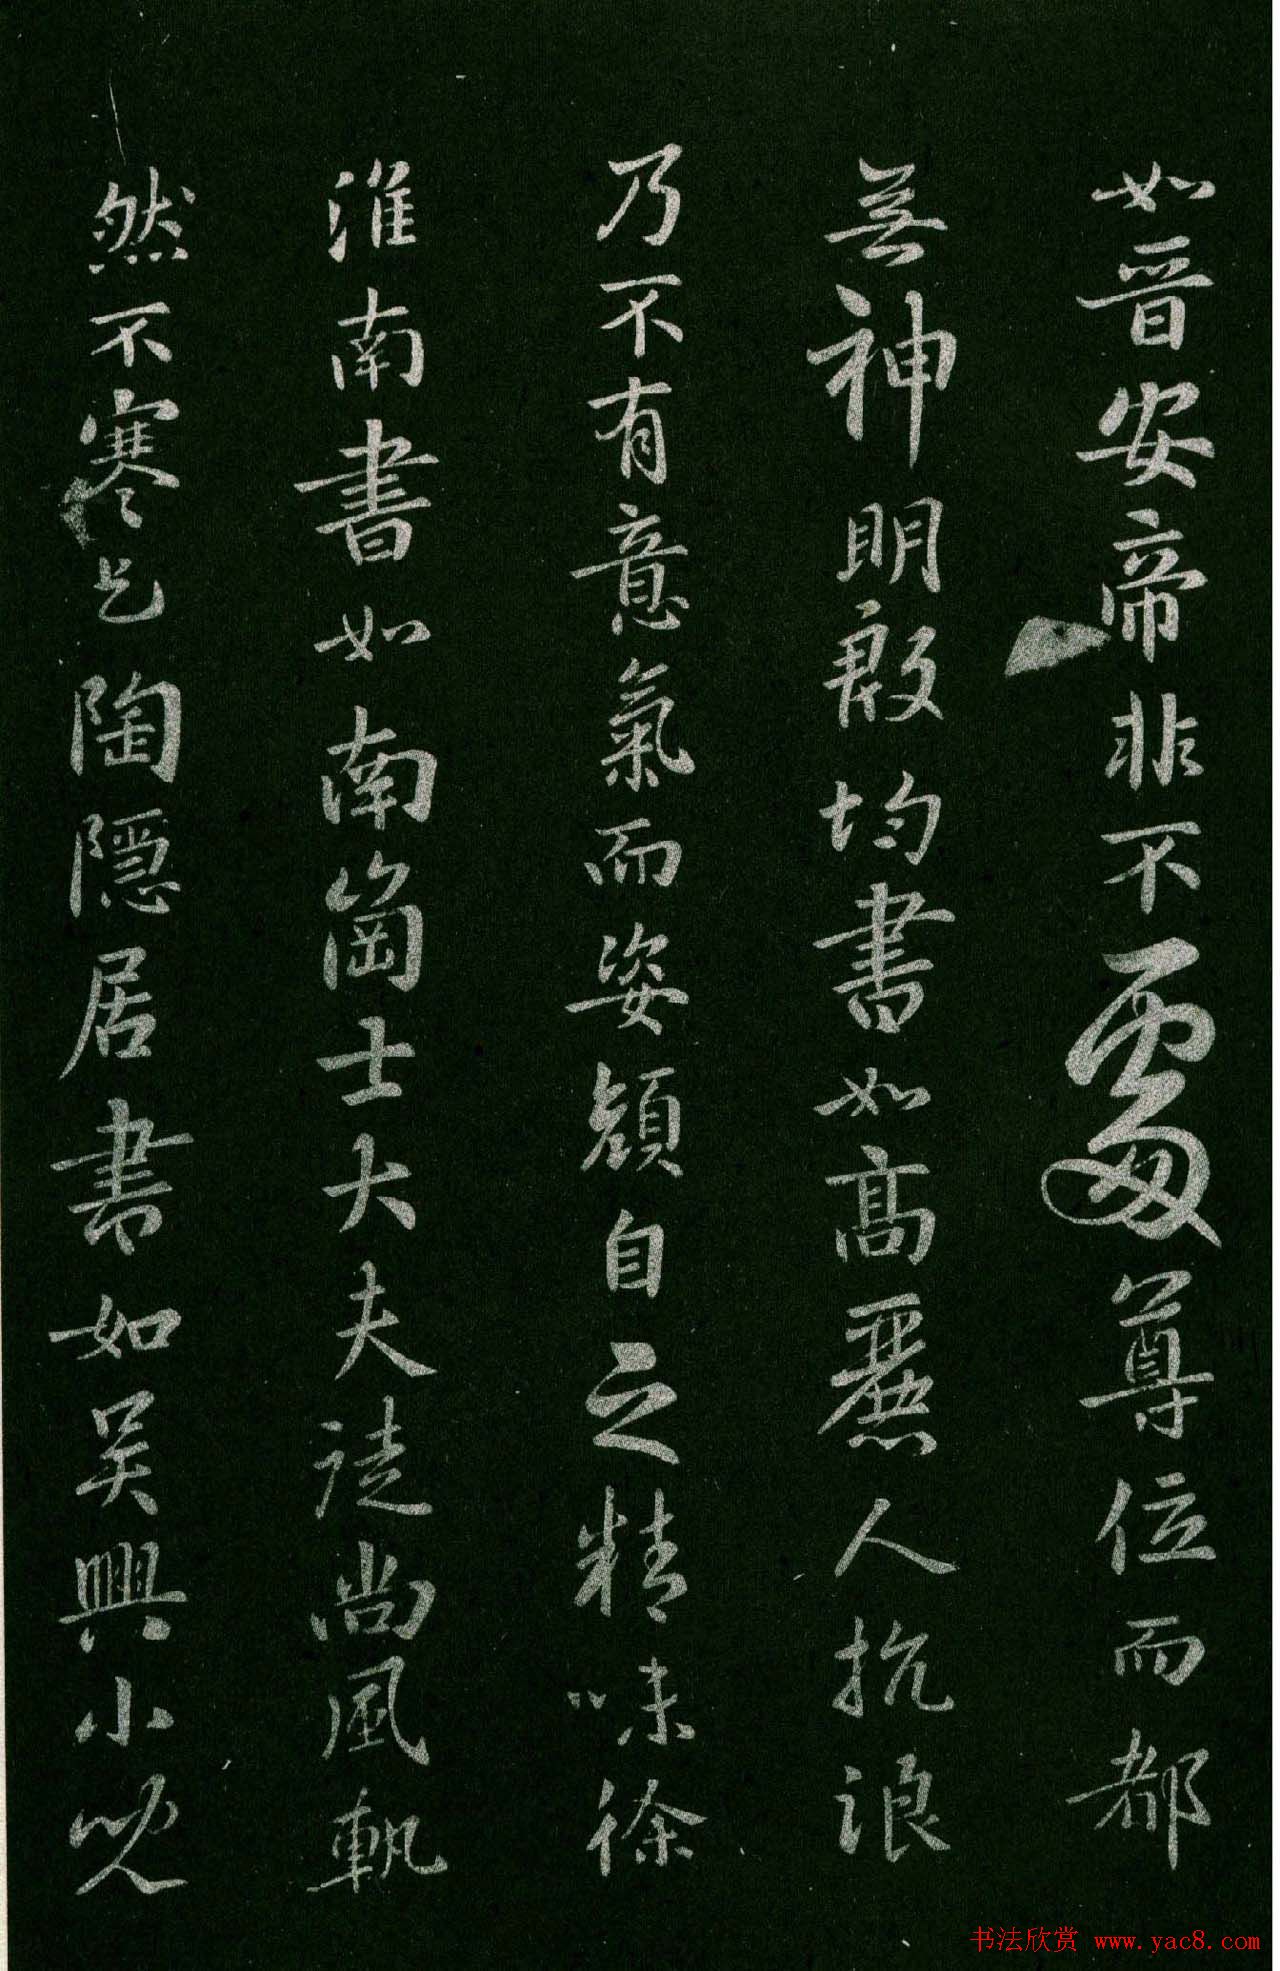 如晉安帝非不處尊位而都
無神明殷均書如高麗人抗浪
乃不有意氣而姿顏自之精味徐
淮南書如南崗士大夫徒尚風軌
然不寒乞陶隱居書如吴興小兒
书法欣赏 www.yac8.com